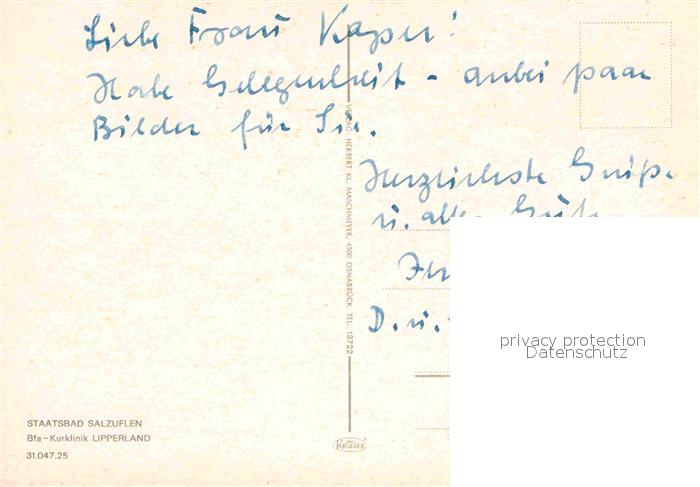 Liebe Frau Kaper!
Habe Gelegenheit - anbei paar
Bilder für Sie.
Herzlichste Grüße
u. alles Gute
D. u.
VERLAG: HERBERT KL. MASCHMEYER, 4500 OSNABRÜCK TEL. 13722
STAATSBAD SALZUFLEN
Bfa-Kurklinik LIPPERLAND
31.047.25
KRÜGER
privacy protection
Datenschutz